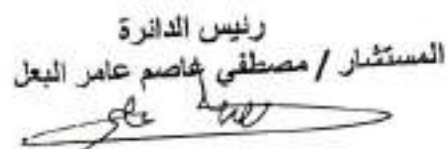 رئيس الدائرة
المستشار / مصطفي عاصم عامر البعل